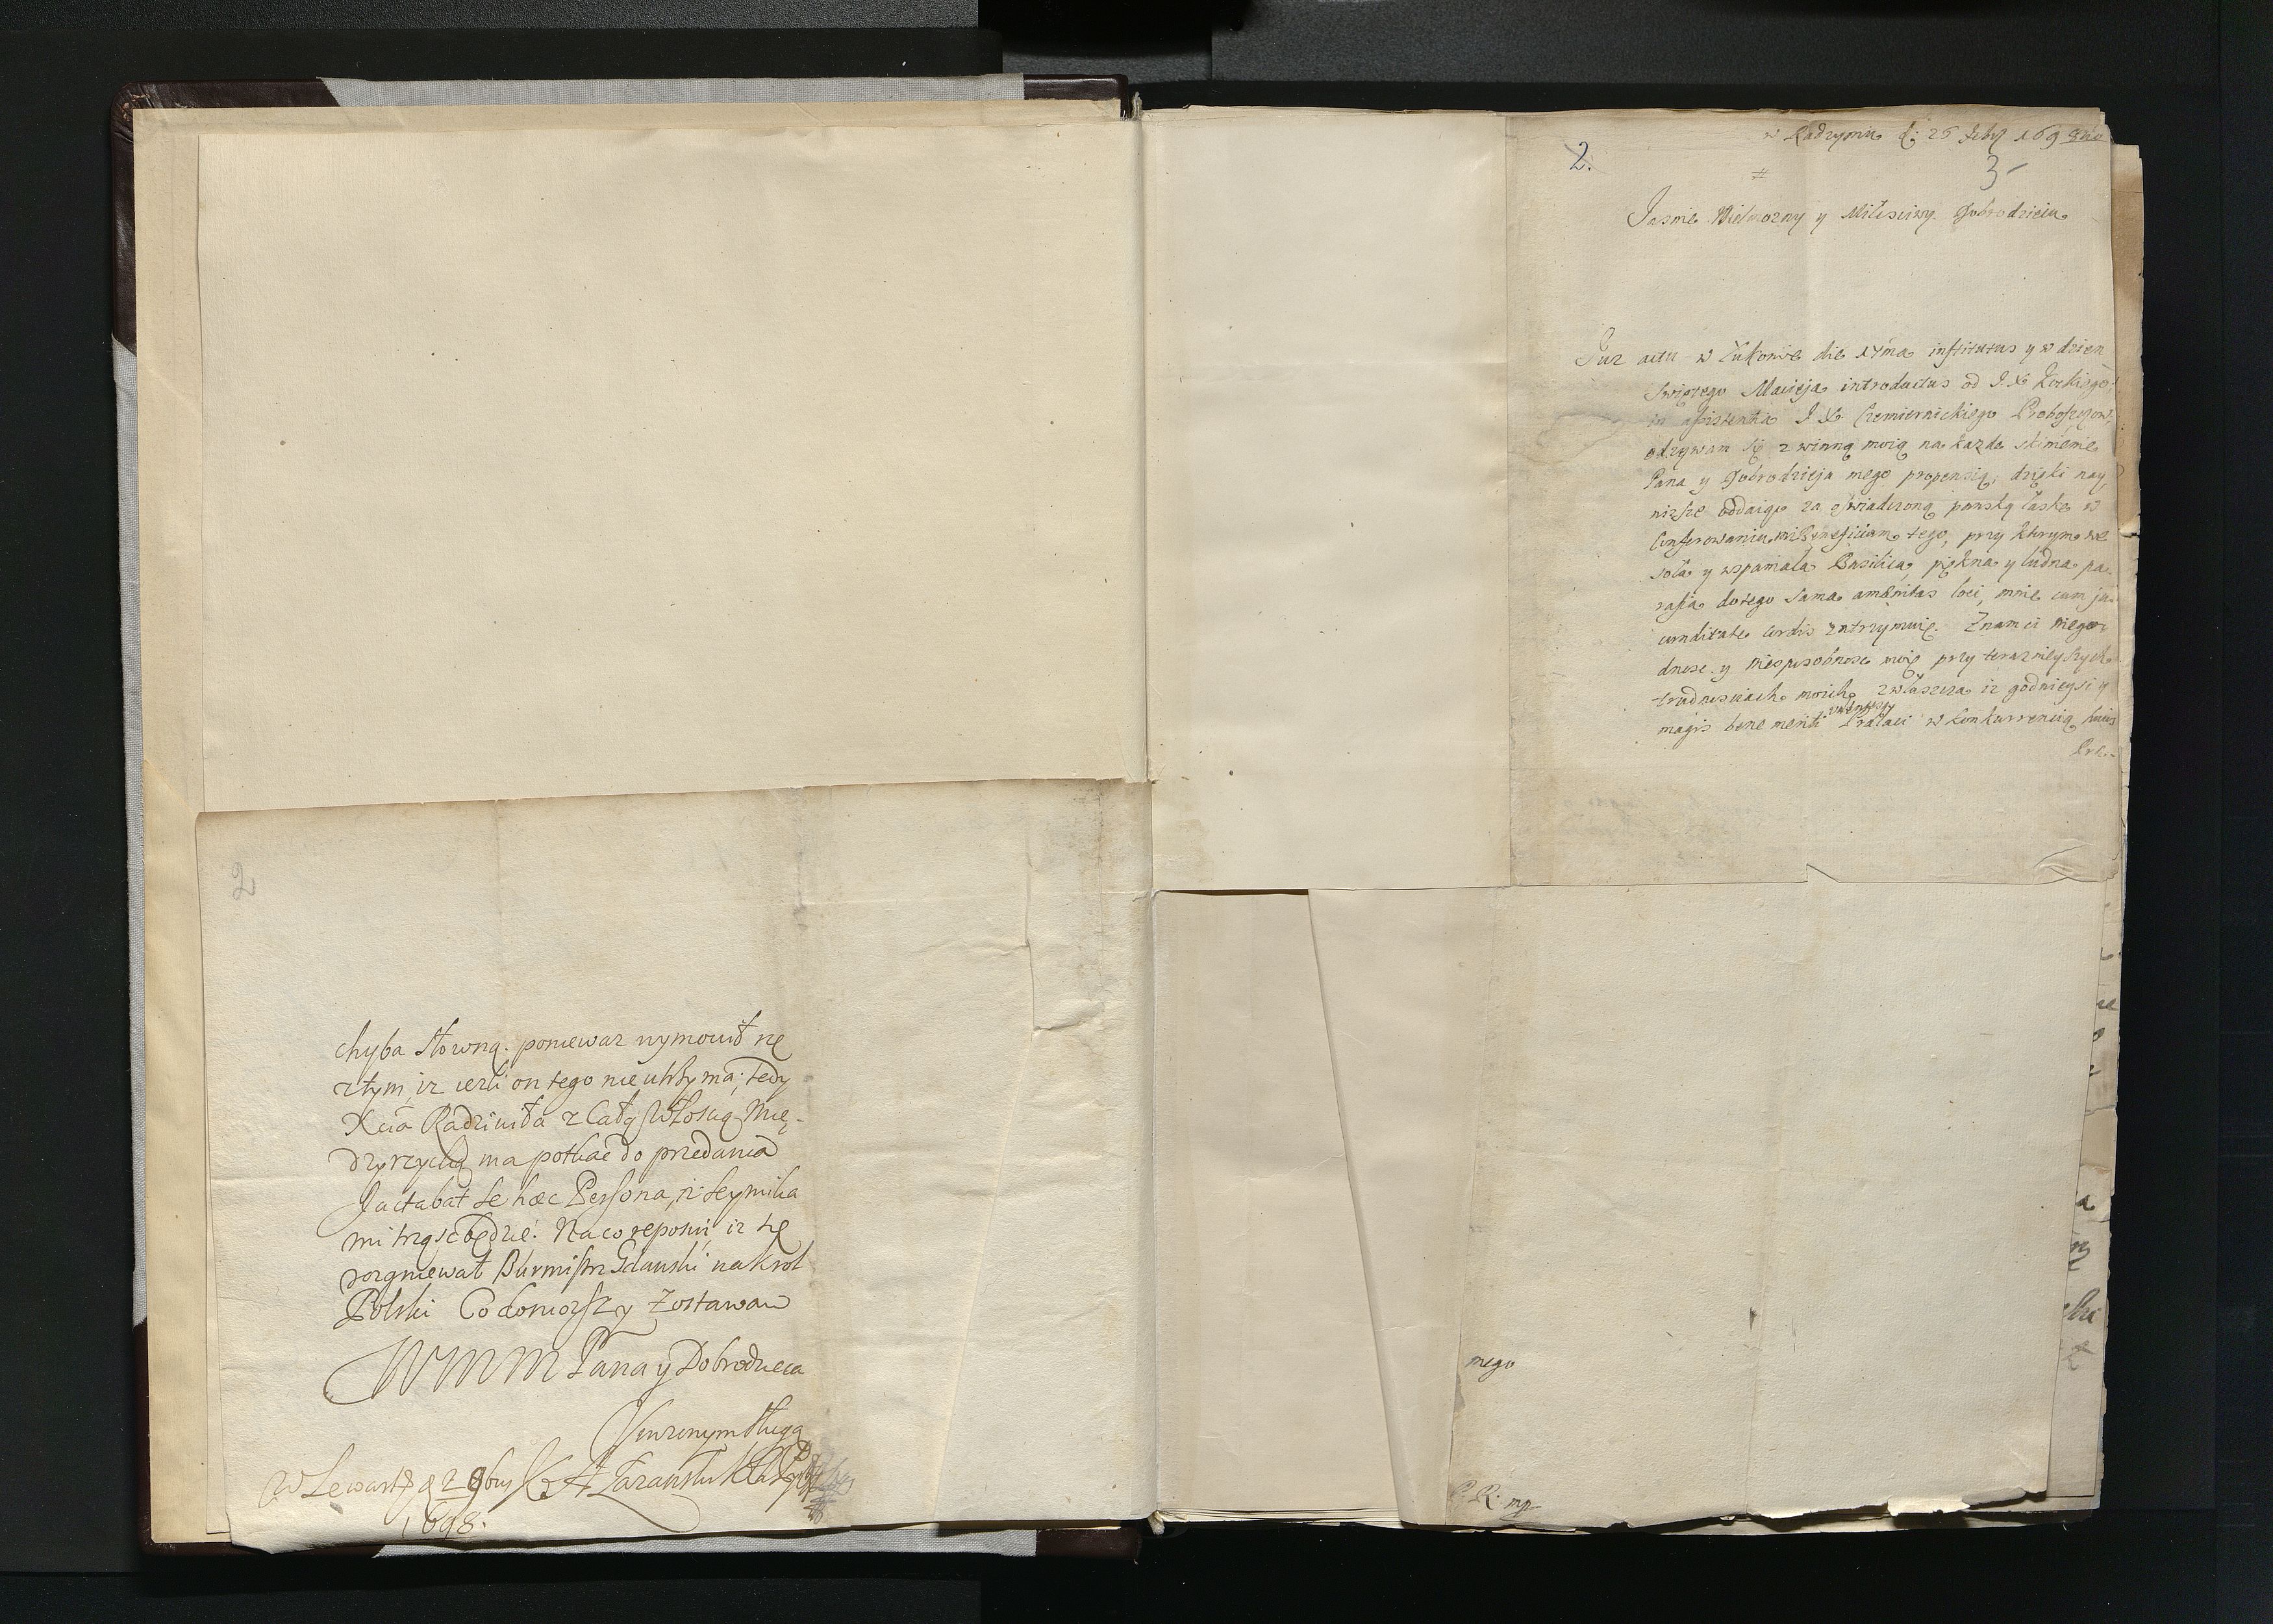 2
chyba słowną. poniewaz wymowił się
ztym, iz iezli on tego nie utrzyma, tedy
Xcia Radziwiła z Całą Włoscią Mię-
dzyrzycką ma potkac do przedania
Jactabat se hæc Persona, iz seymika
mi trząsc będzie. Na co reposui, iz się
rozgniewał Burmistrz Gdanski na Krol
Polski Co doniozszy Zostawam
WMM Pana y Dobrodzieia
Uniżonym sługą
W Lewart d 2 9bris X A Zaranski
1698.
w Radzyniu d: 26 Febr 169
2.
3
Jasnie Wielmozny y Milosciwy Dobrodzieiu
Juz actu w Łukowie die 17ma institutus y w dzien
Swiętego Macieja introductus od J. X.
in assistentia J X. Czemiernickiego Proboszczow,
odzywam się z winną moią na kazde skinienie
Pana y Dobrodzieja mego propensią, dzięki nay,
nizsze oddaiąc za oswiadczoną panską łaskę w
Conferowaniu mi Beneficium tego, przy ktorym we
soła y wspaniała Basilica, piękna y ludna pa-
rafia dotego sama amænitas loci, mnie cum ju
cunditate cordis zatrzymuie. Znam ci niego
dnosc y niesposobnosc moię przy teraznieyszych
trudnosciach moich, zwłaszcza iz godnieysi y
magis bene meriti Prałaci w konkurrencią huius
mego
R: mp